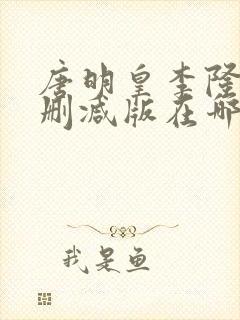 唐明皇李隆
删减版在哪
我是鱼